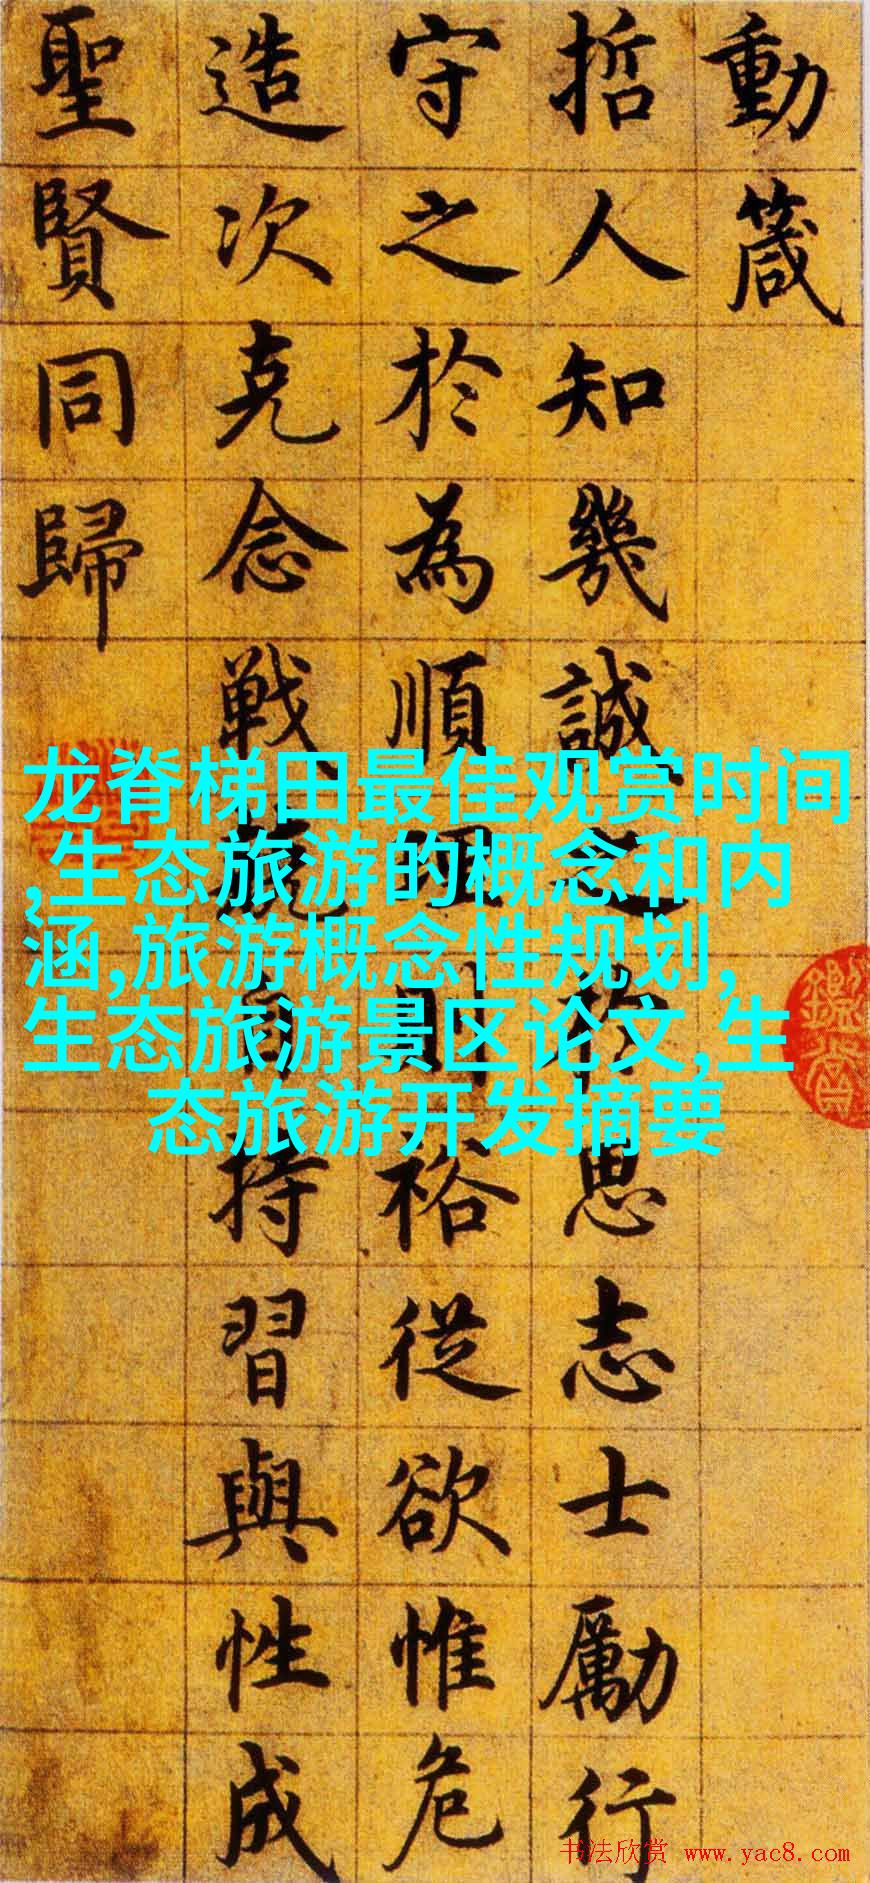 動箴
哲人知幾誠之於思志士勵行
守之於為順理則裕從欲惟危
造次克念戰兢自持習與性成
聖賢同歸
龙脊梯田最佳观赏时间
,生态旅游的概念和内
涵,旅游概念性规划,
生态旅游景区论文,生
态旅游开发摘要
书法欣赏 www.yac8.com